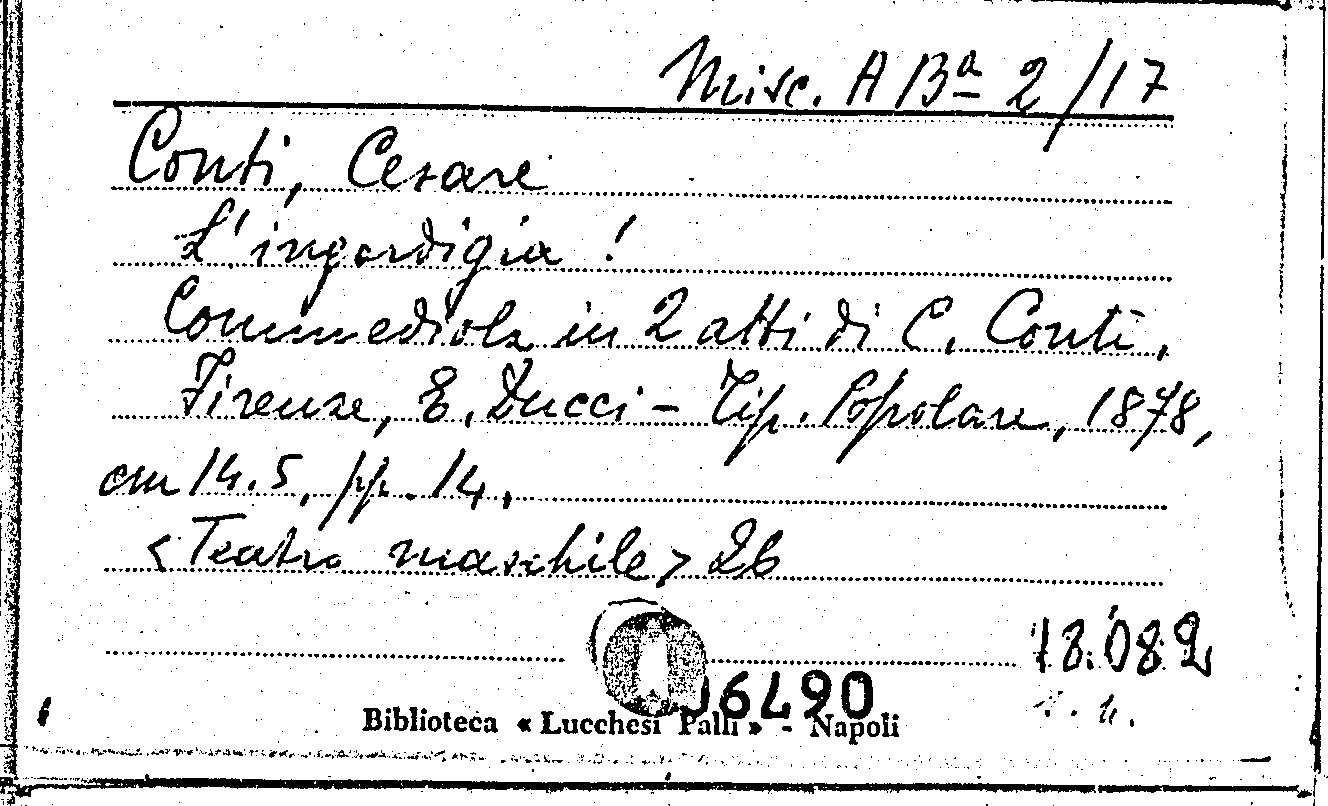 Misc. A Bª 2/17
Conti, Cesare
L'ingordigia !
Commediola in 2 atti di C. Conti.
Firenze, E. Ducci - Tip. Popolare, 1878,
cm 14.5, pp. 14.
<Teatro maschile> 26
18.082
06490
Biblioteca « Lucchesi Palli » - Napoli